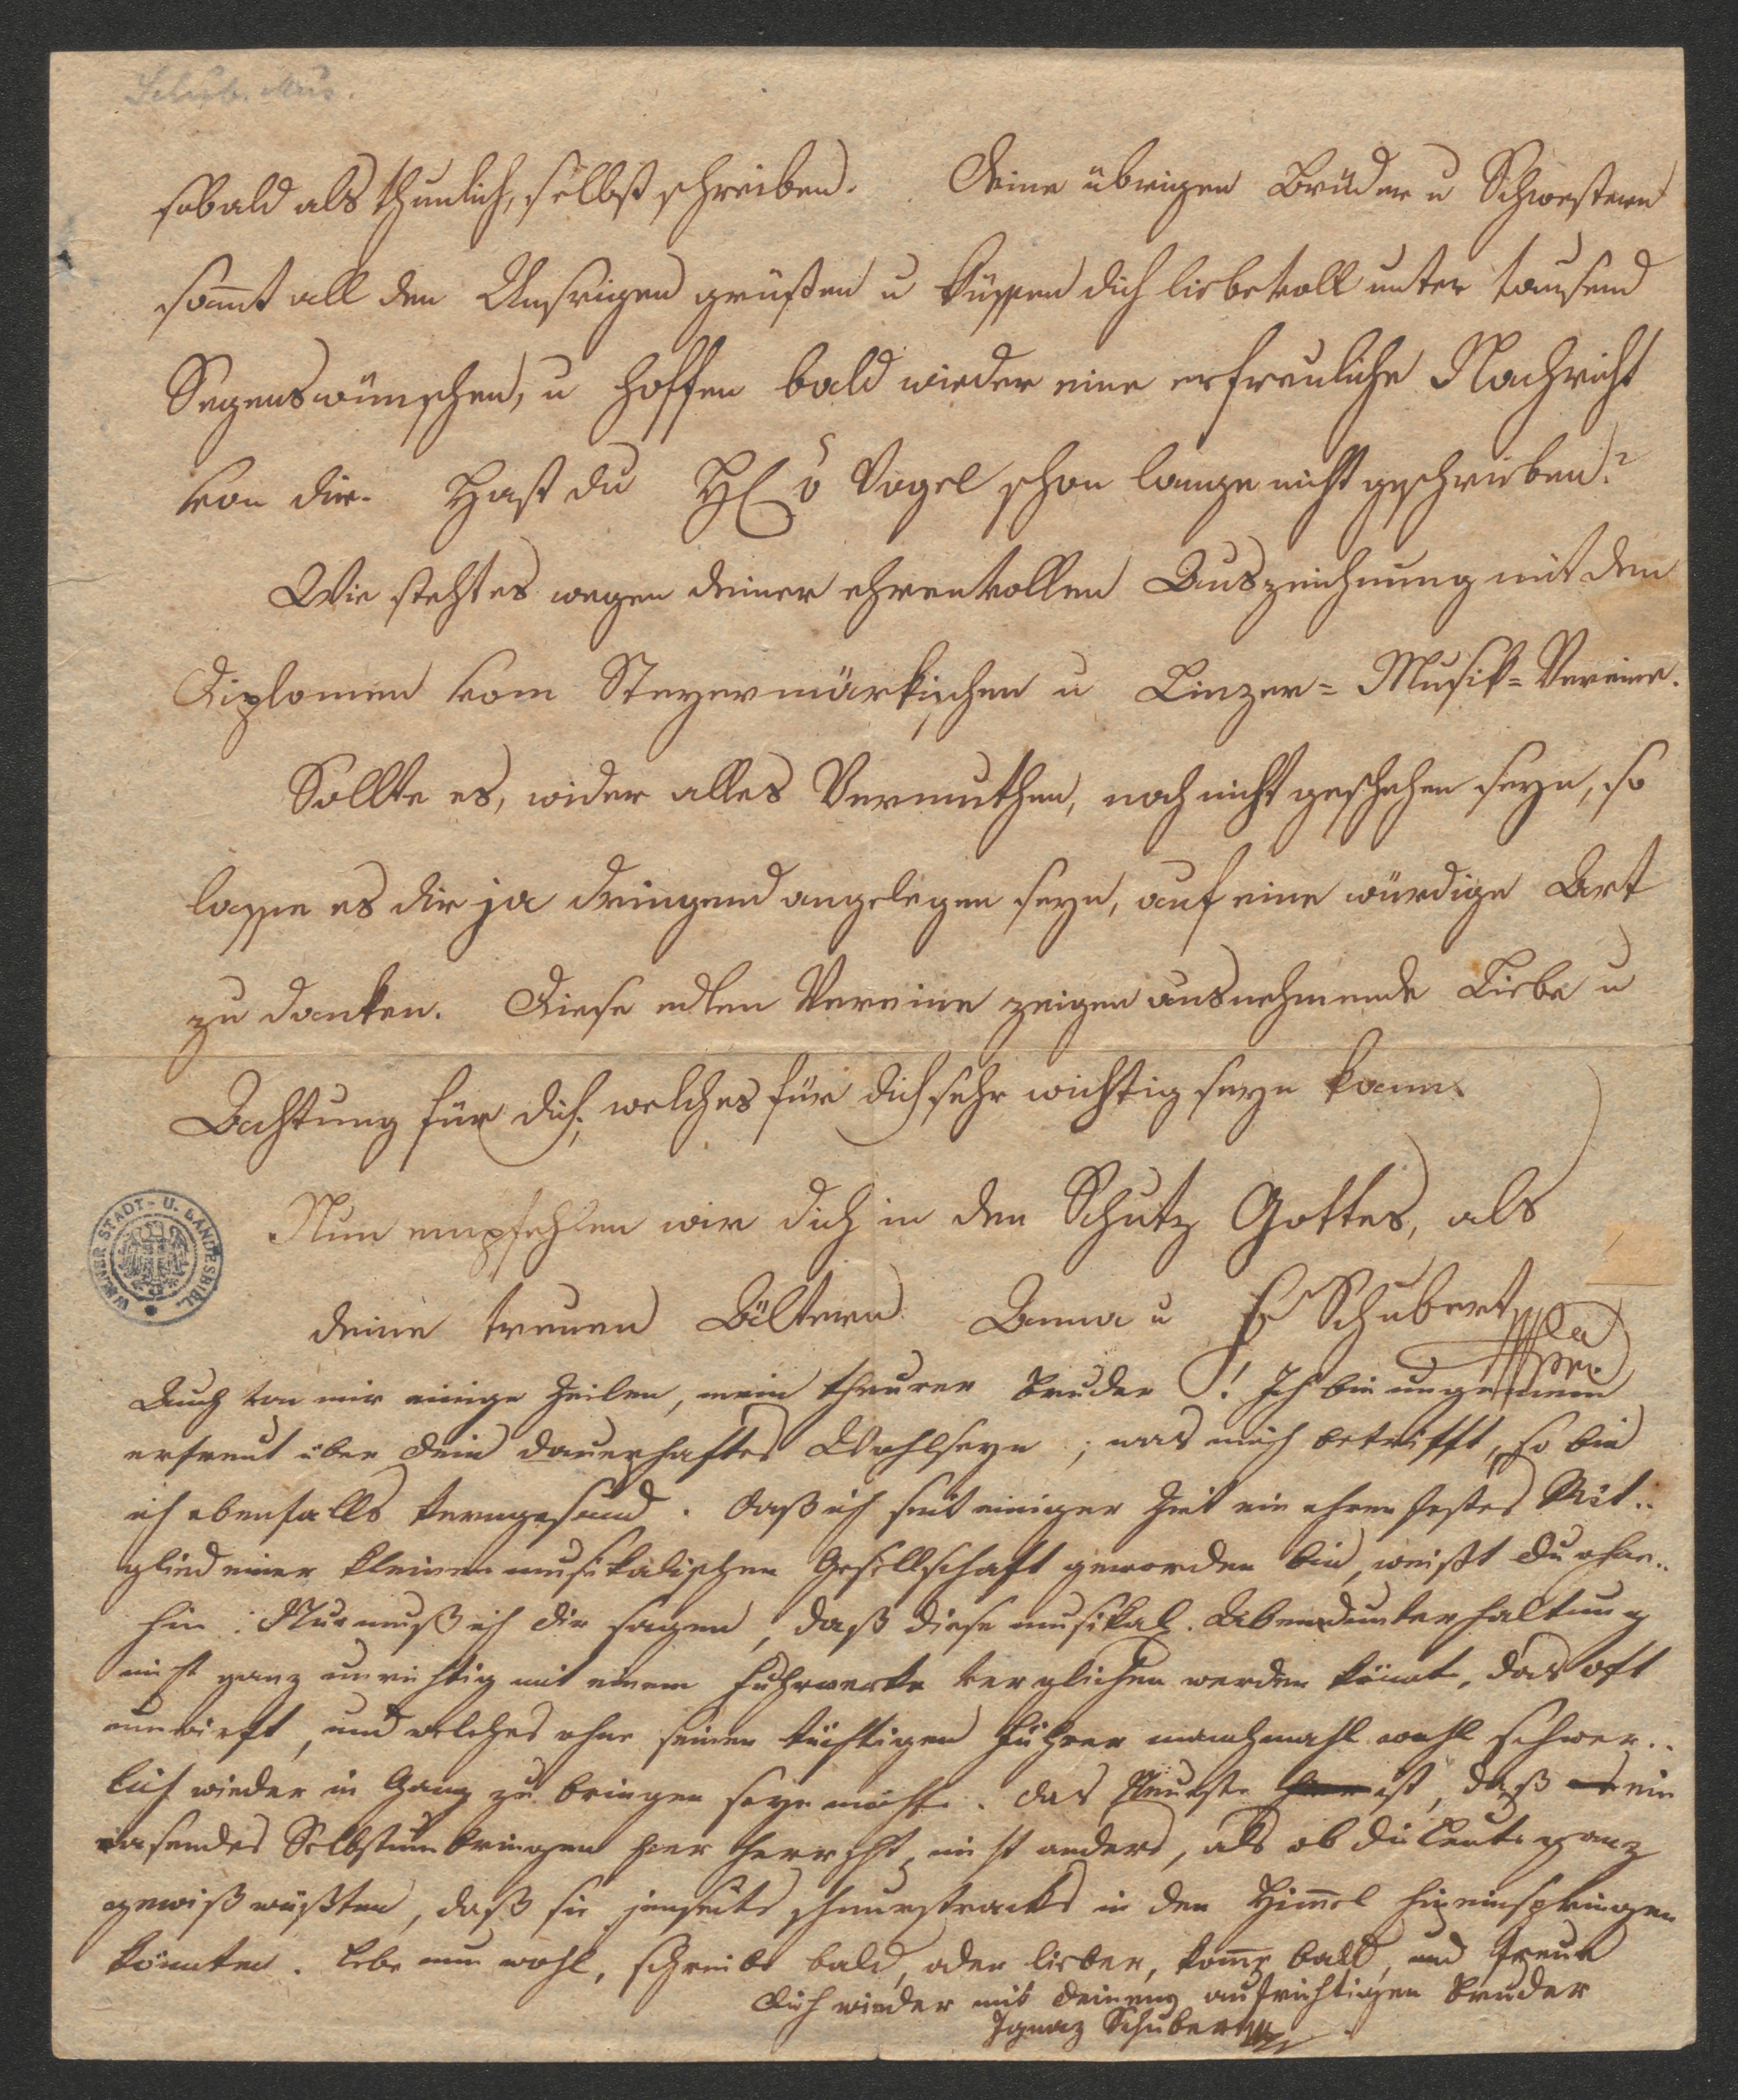 Schub. Mus.
sobald als thunlich, selbst schreiben. Deine übrigen Brüder u Schwestern
sam̄t all den Unsrigen grüßen u küssen dich liebevoll unter tausend
Segenswünschen, u hoffen bald wieder eine erfreuliche Nachricht
von dir. Hast du H v Vogel schon lange nicht geschrieben?
Wie steht es wegen deiner ehrenvollen Auszeichnung mit den
Diplomen vom Steyermärkischen u Linzer=Musik=Vereine.
Sollte es, wider alles Vermuthen, noch nicht geschehen seyn, so
lasse es dir ja dringend angelegen seyn, auf eine würdige Art
zu danken. Diese edlen Vereine zeigen ausnehmende Liebe u
Achtung für dich, welches für dich sehr wichtig seyn kann.
Nun empfehlen wir dich in den Schutz Gottes, als
deine treuen Ältern Anna u Fr Schubert
WIENER STADT- U. LANDESBIBL.
Auch von mir einige Zeilen, mein theurer Bruder! Ich bin ungemein
erfreut über Dein dauerhaftes Wohlseyn; was mich betrifft, so bin
ich ebenfalls kerngesund. Daß ich seit einiger Zeit ein ehrenfestes Mit..
glied einer kleinen musikalischen Gesellschaft geworden bin, weißt Du ohne..
hin. Nur muß ich dir sagen, daß diese musikal. Abendunterhaltung
nicht ganz unrichtig mit einem Fuhrwerke verglichen werden könnte, das oft
umwirft, und welches ohne seinen tüchtigen Führer manchmahl wohl schwer..
lich wieder in Gang zu bringen seyn möchte. Das Neueste hier ist, daß ein
rasendes Selbstumbringen hier herrscht, nicht anders, als ob die Leute ganz
gewiß wüßten, daß sie jenseits schnurstracks in den Him̄el hineinspringen
könnten. Lebe nun wohl, schreibe bald, oder lieber, kom̄e bald, und freue
Dich wieder mit Deinem aufrichtigen Bruder
Ignaz Schubert